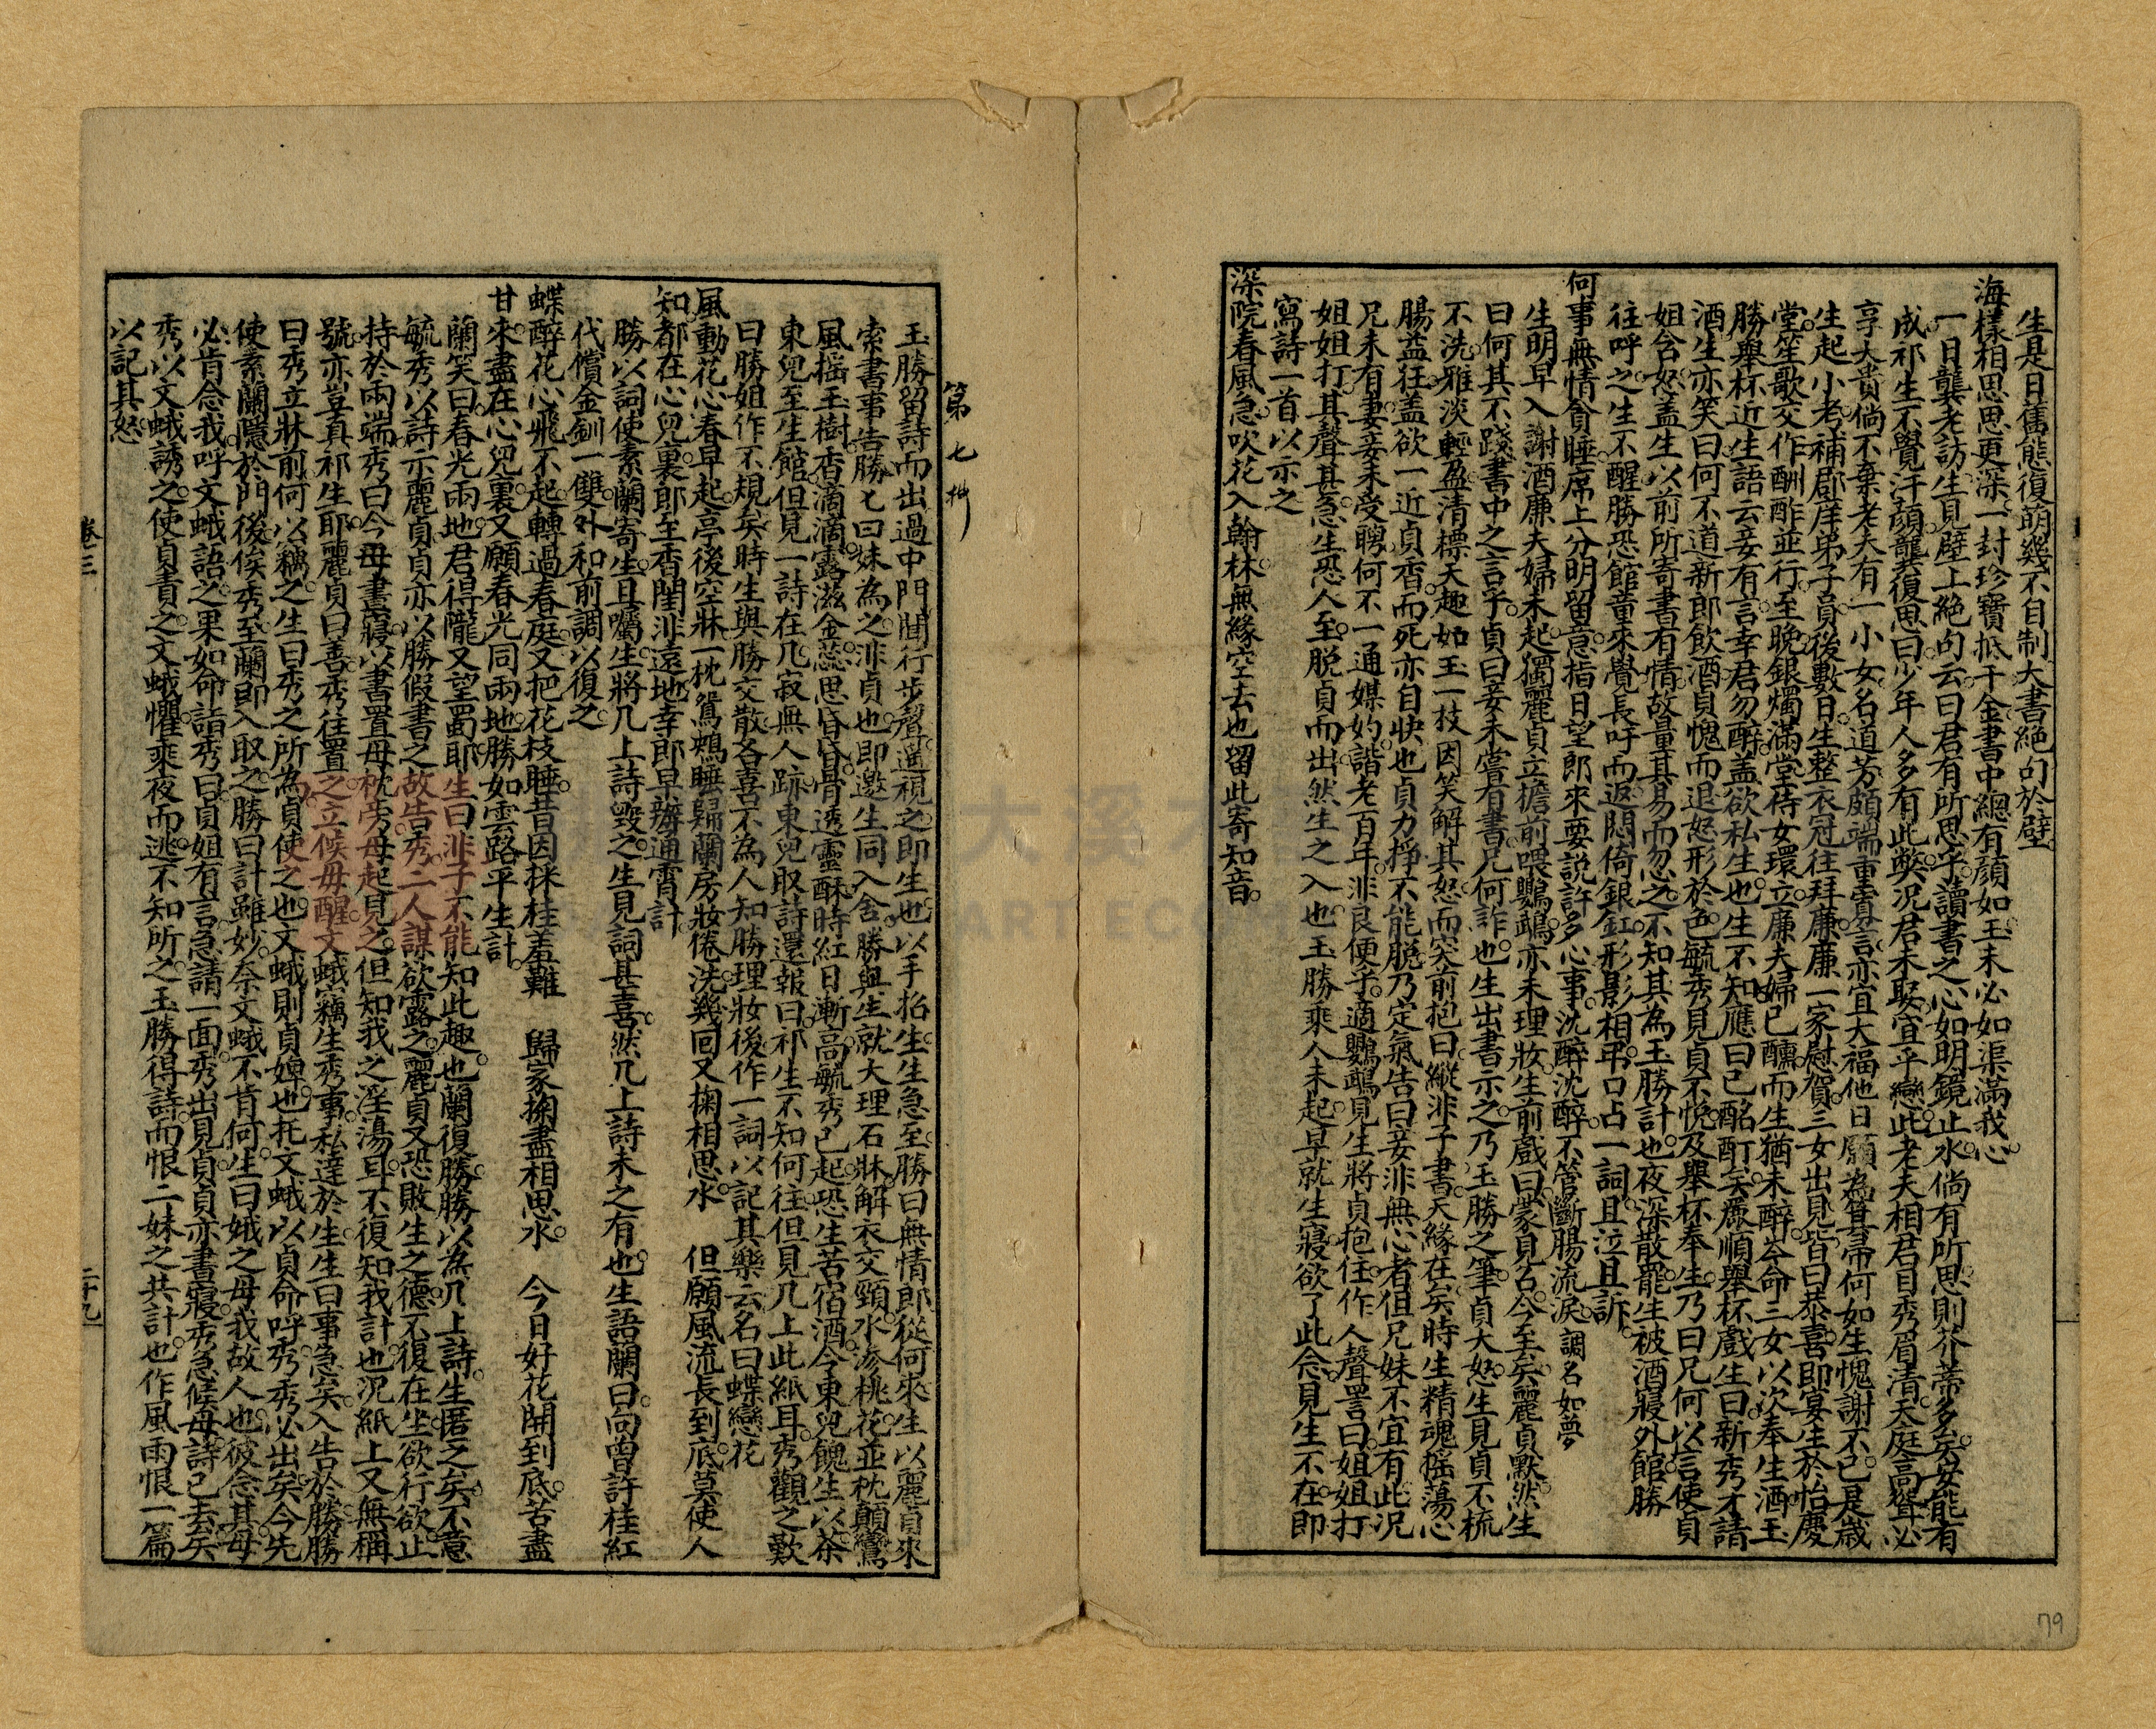 生是日舊態復萌幾不自制大書絕句於壁
海樣相思思更深一封珍寶抵千金書中總有顏如玉未必如渠滿我心
一日龔老訪生見壁上絕句云曰君有所思乎讀書之心如明鏡止水倘有所思則芥蒂多矣安能有
成祁生不覺汗顏龔復思曰少年人多有此獘況君未娶宜乎戀此老夫相君目秀眉清天庭高聳必
享大貴倘不棄老夫有一小女名道芳頗端重寡言亦宜大福他日願為箕帚何如生愧謝不已是歲
生起小考補郡庠弟子員後數日生整衣冠往拜廉廉一家慰賀三女出見皆曰恭喜即宴生於怡慶
堂笙歌交作酬酢並行至晚銀燭滿堂侍女環立廉夫婦已醺而生猶未醉岑命三女以次奉生酒玉
勝舉杯近生語云妾有言幸君勿醉蓋欲私生也生不知應曰已酩酊矣廉順舉杯戲生曰新秀才請
酒生亦笑曰何不道新郎飲酒貞愧而退怒形於色毓秀見貞不悅及舉杯奉生乃曰兄何以言使貞
姐含怒蓋生以前所寄書有情故量其易而忽之不知其為玉勝計也夜深散罷生被酒寢外館勝
往呼之生不醒勝恐館童來覺長吁而返悶倚銀釭形影相弔口占一詞且泣且訴
何事無情貪睡席上分明留意指日望郎來要說許多心事沈醉沈醉不管斷腸流淚調名如夢
生明早入謝酒廉夫婦未起獨麗貞立擔前喂鸚鵡亦未理妝生前戲曰蒙見召今至矣麗貞默然生
曰何其不踐書中之言乎貞曰妾未嘗有書兄何詐也生出書示之乃玉勝之筆貞大怒生見貞不梳
不洗雅淡輕盈清標天趣如玉一枝因笑解其怒而突前抱曰縱非子書天緣在矣時生精魂搖蕩心
腸益狂蓋欲一近貞香而死亦自快也貞力掙不能脫乃定氣告曰妾非無心者但兄妹不宜有此況
兄未有妻妾未受聘何不一通媒妁諧老百年非良便乎適鸚鵡見生將貞抱住作人聲詈曰姐姐打
姐姐打其聲甚急生恐人至脫貞而出然生之入也玉勝乘人未起早就生寢欲了此念見生不在即
寫詩一首以示之
深院春風急吹花入翰林無緣空去也留此寄知音
第七折
玉勝留詩而出過中門聞行步聲遙視之即生也以手招生生急至勝曰無情郎從何來生以麗貞來
索書事告勝匕曰妹為之非貞也即邀生同入舍勝與生就大理石牀解衣交頸水滲桃花並枕顛鸞
風搖玉樹香滴滴露滋金蕊思昏昏骨透靈酥時紅日漸高毓秀已起恐生苦宿酒令東兒餽生以茶
東兒至生館但見一詩在几寂無人跡東兒取詩還報曰祁生不知何往但見几上此紙耳秀觀之歎
曰勝姐作不規矣時生與勝交散各喜不為人知勝理妝後作一詞以記其樂云名曰蝶戀花
風動花心春早起亭後空牀一枕鴛鴦睡歸蘭房妝倦洗幾回又掬相思水　但願風流長到底莫使人
知都在心兒裏郎至香閨非遠地幸郎早辦通霄計
勝以詞使素蘭寄生且囑生將几上詩毀之生見詞甚喜然几上詩未之有也生語蘭曰向曾許桂紅
代償金釧一雙外和前調以復之
蝶醉花心飛不起轉過春庭又把花枝睡昔因採桂羞難　歸家掬盡相思水　今日好花開到底苦盡
甘來盡在心兒裏又願春光同兩地勝如雲路平生計
蘭笑曰春光兩地君得隴又望蜀耶生曰非子不能知此趣也蘭復勝勝以為几上詩生匿之矣不意
毓秀以詩示麗貞貞亦以勝假書之故告秀二人謀欲露之麗貞又恐敗生之德不復在坐欲行欲止
持於兩端秀曰今母書寢以書置母枕旁母起見之但知我之淫蕩耳不復知我計也況紙上又無稱
號亦豈真祁生耶麗貞曰善秀往置之立候母醒文蛾竊生秀事私達於生生曰事急矣入告於勝勝
曰秀立牀前何以竊之生曰秀之所為貞使之也文蛾則貞婢也托文蛾以貞命呼秀秀必出矣今先
使素蘭隱於門後俟秀至蘭即入取之勝曰計雖妙奈文蛾不肯何生曰娥之母我故人也彼念其母
必肯念我呼文蛾語之果如命詣秀曰貞姐有言急請一面秀出見貞貞亦書寢秀急候母詩已去矣
秀以文蛾誘之使貞責之文蛾懼乘夜而逃不知所之玉勝得詩而恨二妹之共計也作風雨恨一篇
以記其怒
卷三
二十九
79